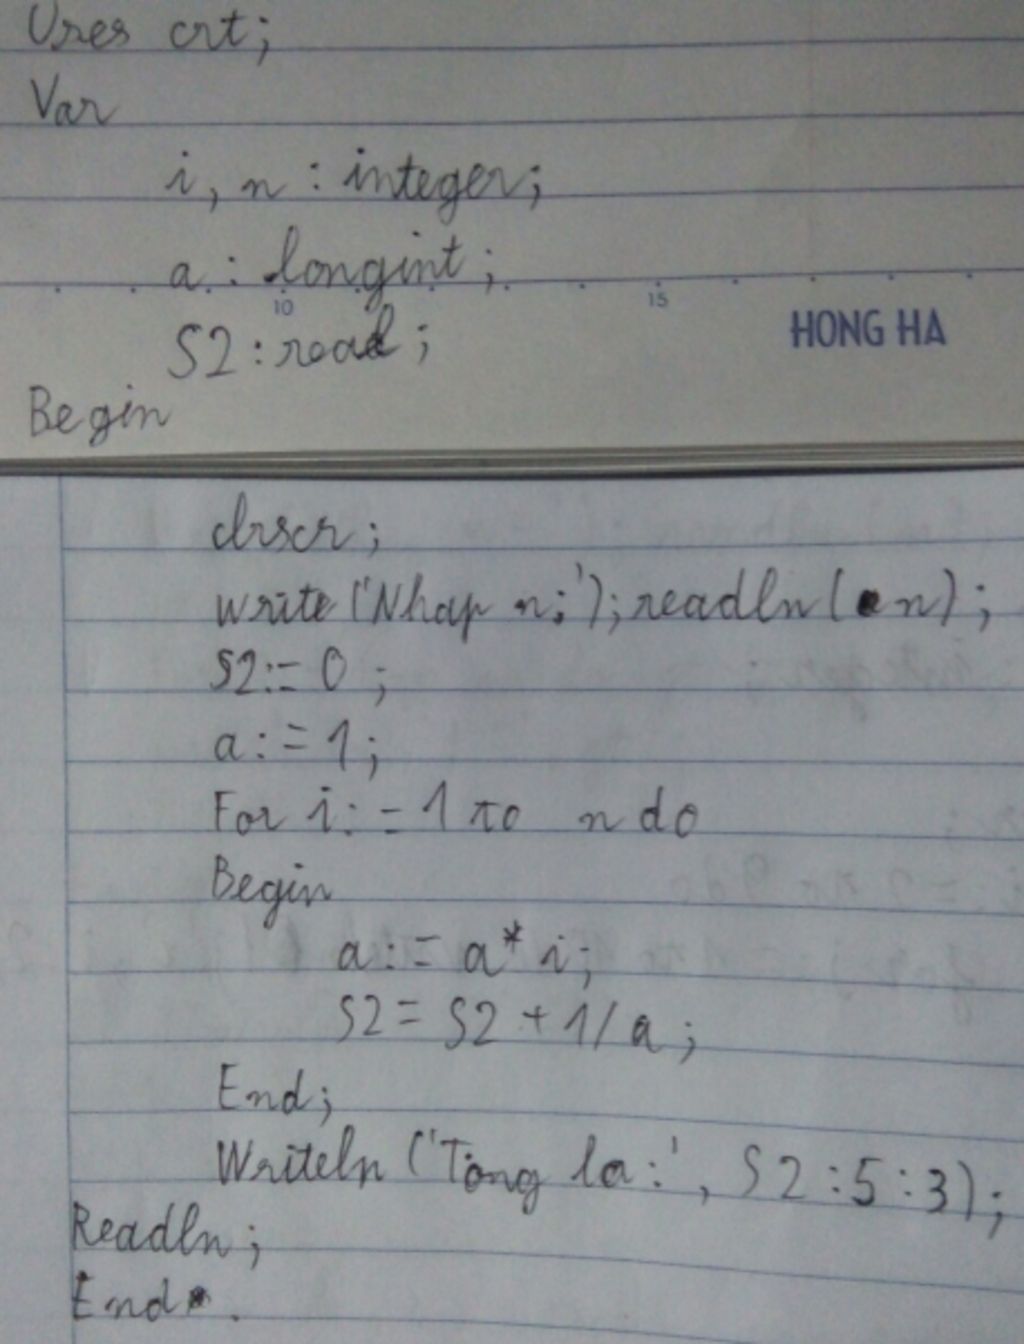 Uses crt;
Var
i, n : integer;
a : longint;
10 15
HONG HA
S2 : read;
Begin
clrscr;
write ('Nhap n;'); readln ( n);
S2:= 0;
a := 1;
For i: = 1 to n do
Begin
a := a* i;
S2 = S2 + 1/a;
End;
Writeln ('Tong la:', S2 : 5 : 3);
Readln;
End .